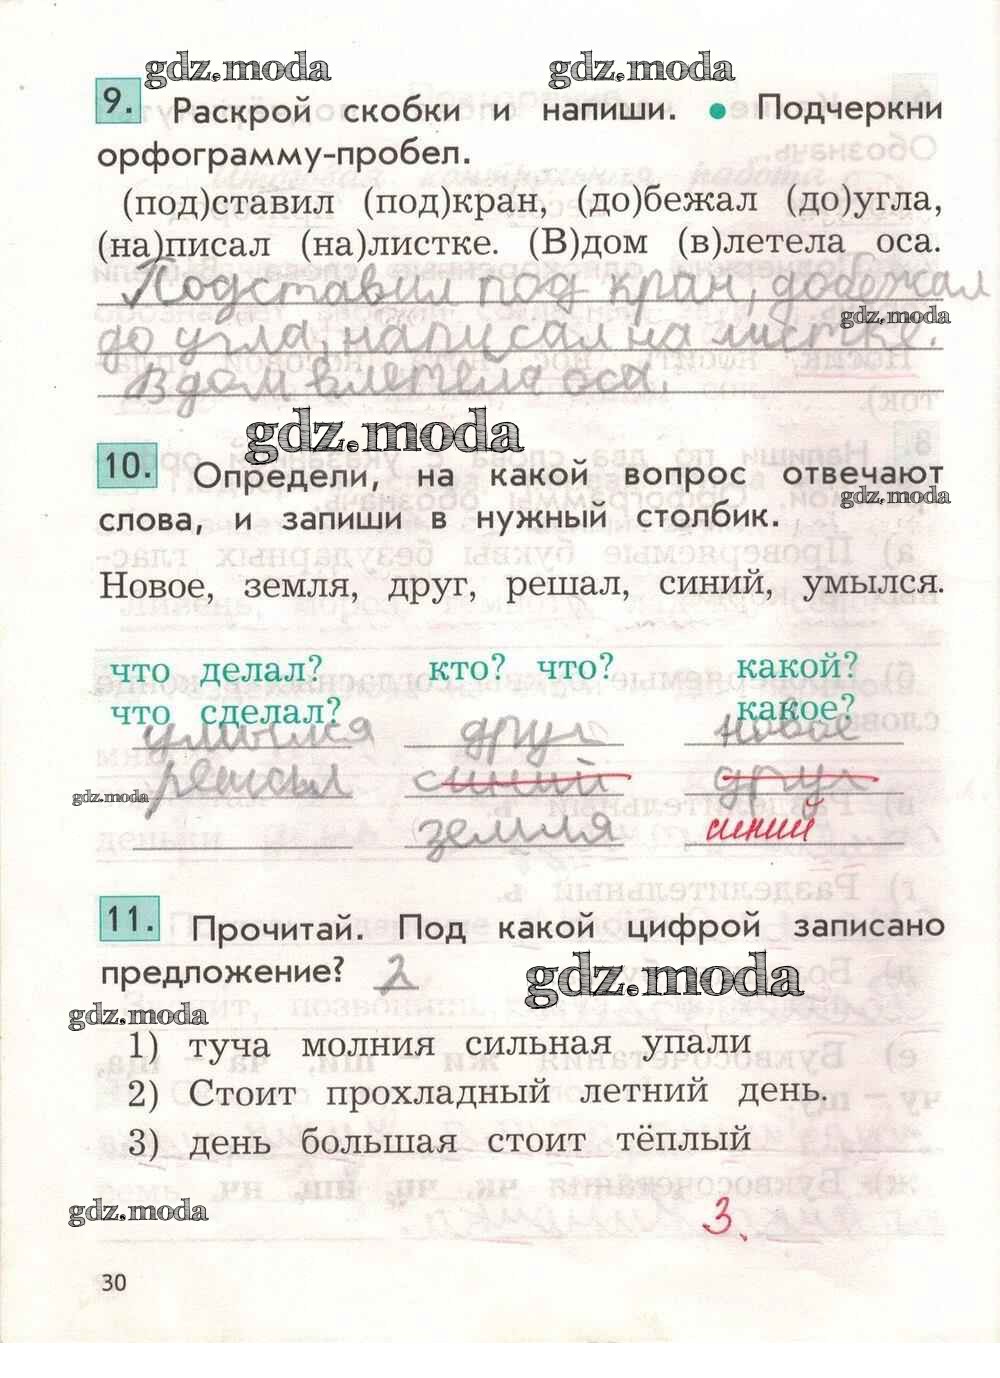 gdz.moda gdz.moda
9. Раскрой скобки и напиши. • Подчеркни
орфограмму-пробел.
(под)ставил (под)кран, (до)бежал (до)угла,
(на)писал (на)листке. (В)дом (в)летела оса.
Подставил под кран, добежал
gdz.moda
до угла, написал на листке.
В дом влетела оса.
gdz.moda
10. Определи, на какой вопрос отвечают
gdz.moda
слова, и запиши в нужный столбик.
Новое, земля, друг, решал, синий, умылся.
что делал? кто? что? какой?
что сделал? какое?
умылся друг новое
решал синий друг
gdz.moda
земля синий
11. Прочитай. Под какой цифрой записано
предложение? 2
gdz.moda
gdz.moda
1) туча молния сильная упали
2) Стоит прохладный летний день.
3) день большая стоит тёплый
gdz.moda
3.
30